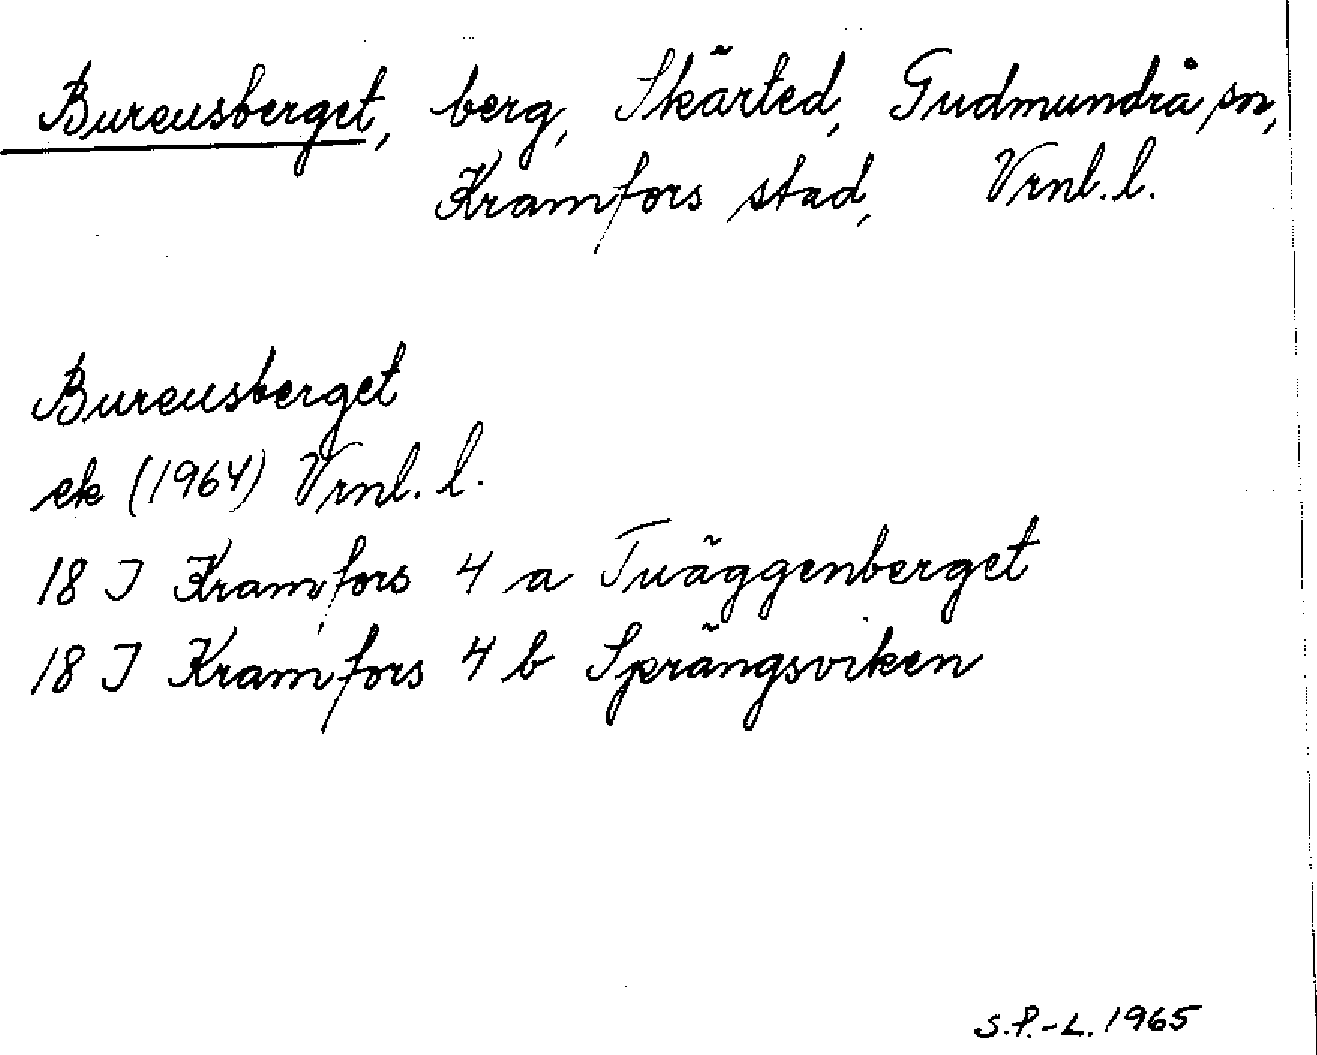 Bureusberget, berg, Skärted, Gudmundrå sn,
Kramfors stad, Vrnl. l.
Bureusberget
ek (1964) Vrnl. l.
18 I Kramfors 4 a Tväggenberget
18 I Kramfors 4 b Sprängsviken
S.P.-L. 1965